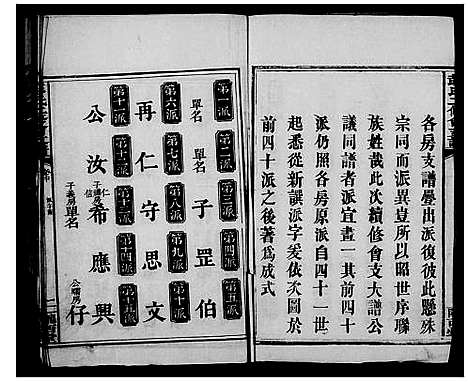 各房支譜疊出派復彼此懸殊
宗同而派異豈所以昭世序聯
族姓哉此次續修會支大譜公
議同譜者派宜畫一其前四十
派仍照各房原派自四十一世
起悉從新譔派字爰依次図
前四十派之後著為成式
第一派 單名
第二派 單名
第三派 子
第四派 罡
第五派 伯
第六派 再
第七派 仁
第八派 守
第九派 思
第十派 文
第十一派 公
第十二派 汝
第十三派 希
第十四派 應
第十五派 興
子義房單名
公曙房仔